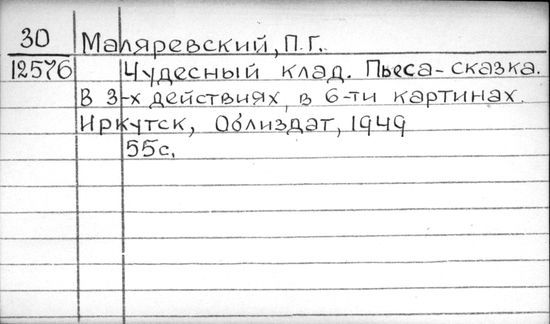 30 Маляревский, П.Г.
12576 Чудесный клад. Пьеса-сказка.
В 3-х действиях, в 6-ти картинах.
Иркутск, Облиздат, 1949
55с.